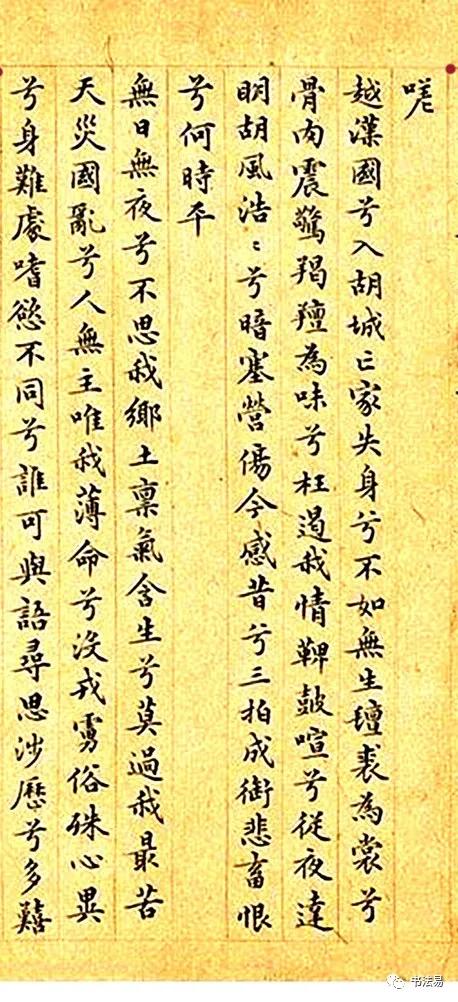 嗟
越漢國兮入胡城亡家失身兮不如無生氊裘為裳兮
骨肉震驚羯羶為味兮枉遏我情鞞鼓喧兮從夜達
明胡風浩〻兮暗塞營傷今感昔兮三拍成銜悲畜恨
兮何時平
無日無夜兮不思我鄉土稟氣含生兮莫過我最苦
天災國亂兮人無主唯我薄命兮沒戎虜俗殊心異
兮身難處嗜慾不同兮誰可與語尋思涉歷兮多囏
书法易